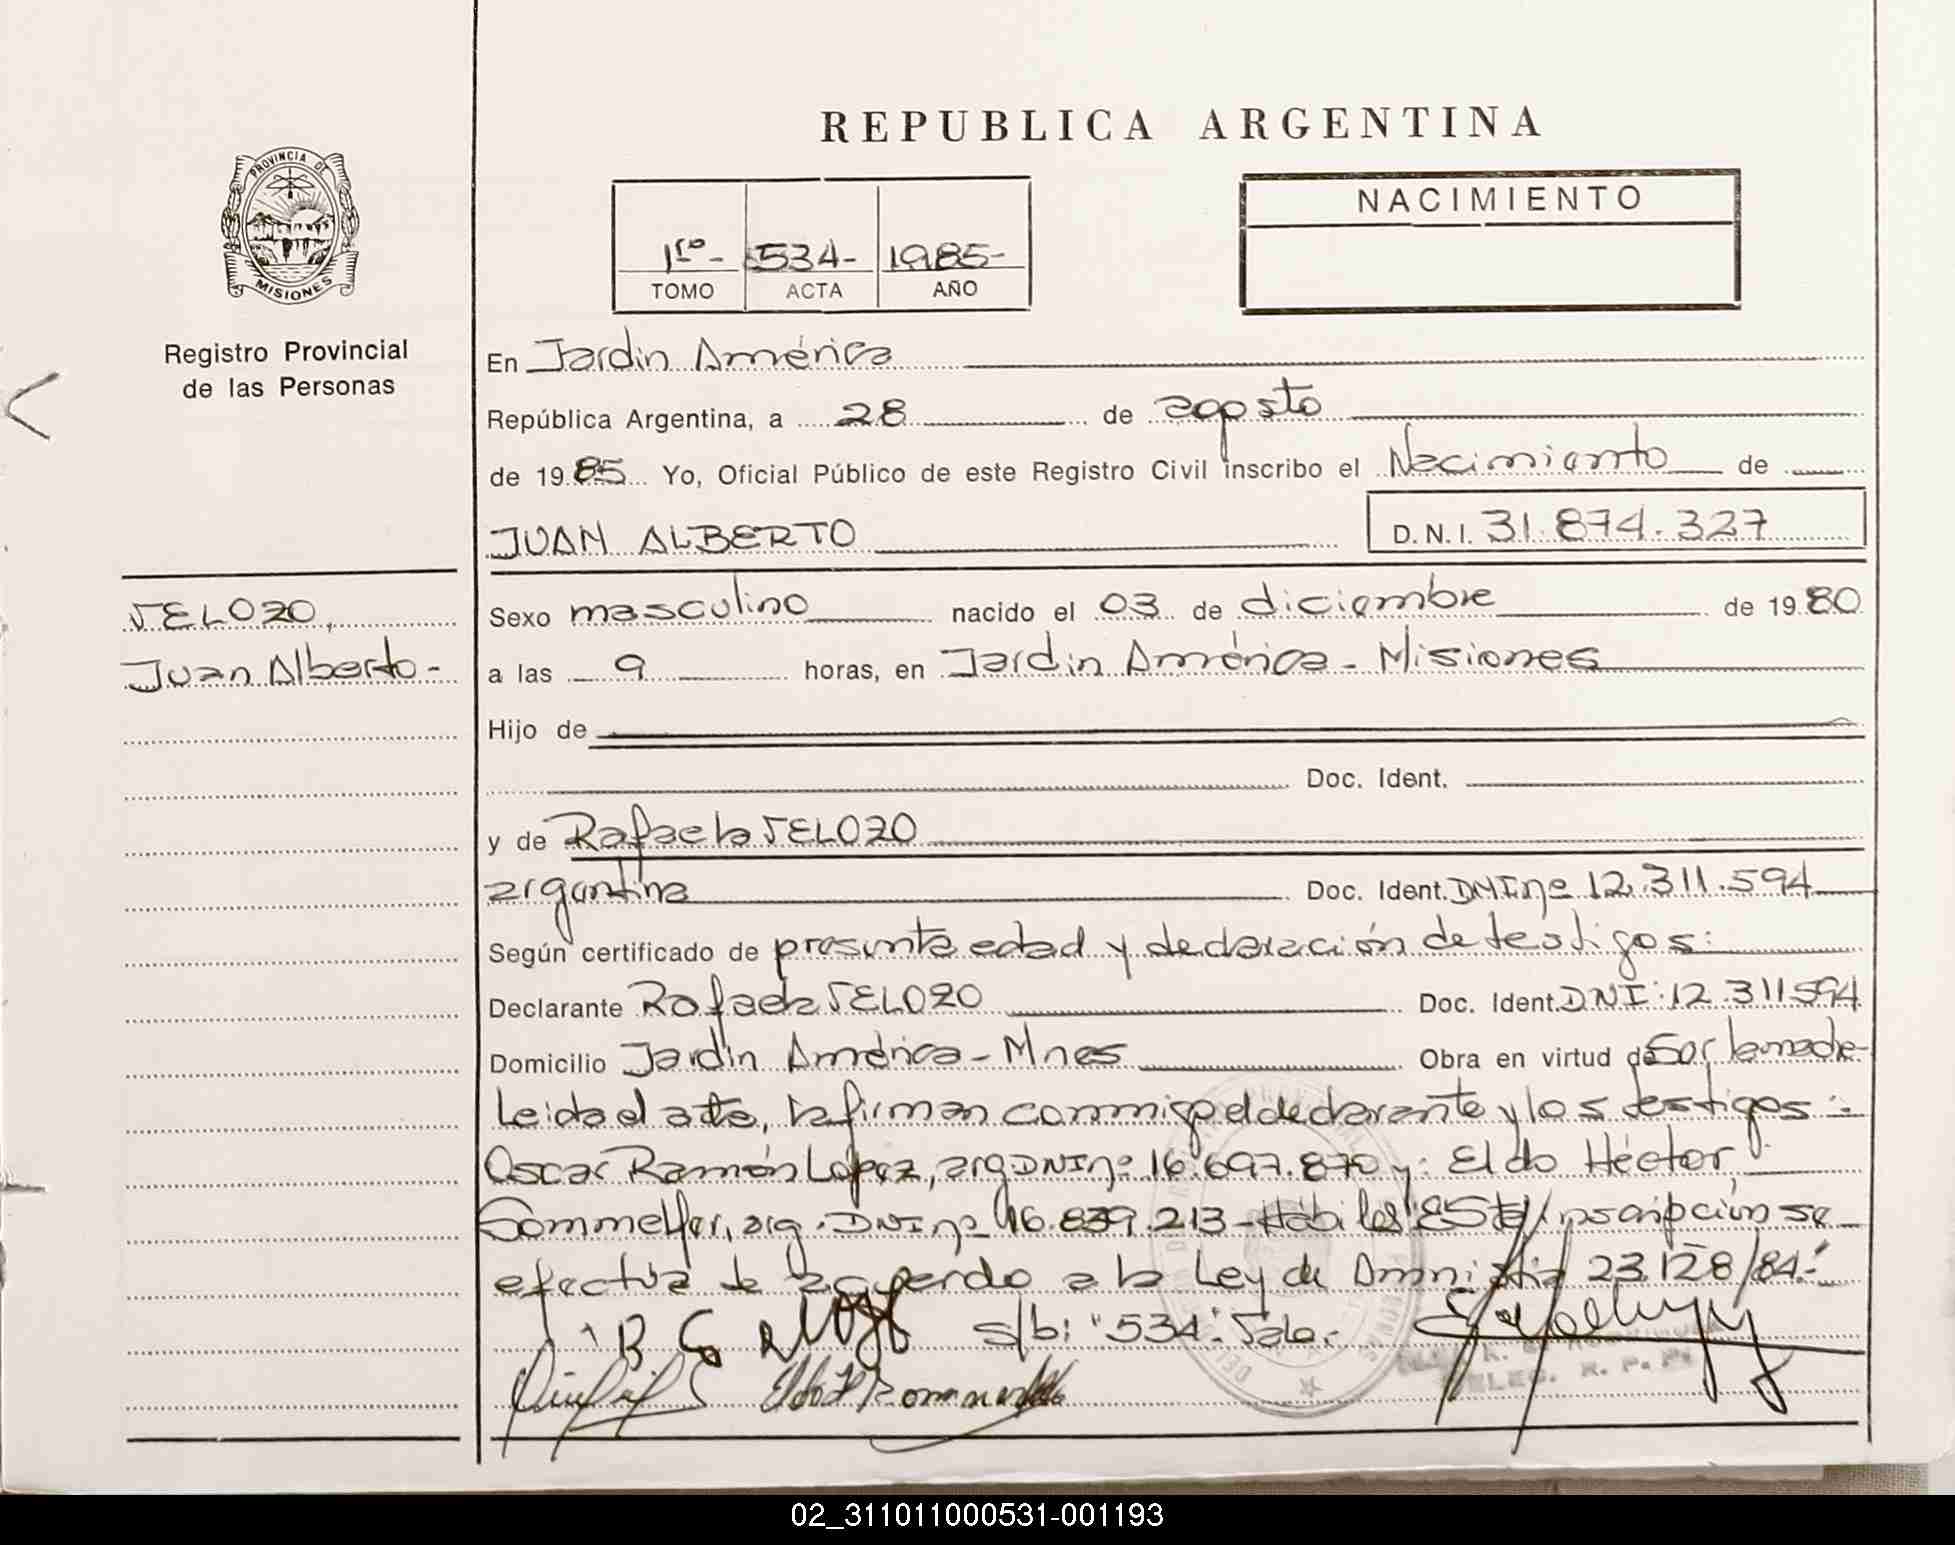 REPUBLICA ARGENTINA
PROVINCIA DE
MISIONES
Registro Provincial
de las Personas
1ro- 534- 1985-
TOMO ACTA AÑO
NACIMIENTO
En Jardin América
República Argentina, a 28 de agosto
de 1985 Yo, Oficial Público de este Registro Civil inscribo el Nacimiento de
JUAN ALBERTO D.N.I. 31.874.327
VELOZO,
Juan Alberto-
Sexo masculino nacido el 03 de diciembre de 1980
a las 9 horas, en Jardin América - Misiones
Hijo de
Doc. Ident.
y de Rafaela VELOZO
argentina Doc. Ident. DNI nº 12.311.594
Según certificado de presunta edad y declaración de testigos:
Declarante Rafaela VELOZO Doc. Ident. DNI: 12.311594
Domicilio Jardin América - Mnes Obra en virtud de Ser la madre-
Leida el acta, la firman conmigo el declarante y los testigos:-
Oscar Ramón Lopez, arg DNI nº 16.697.870 y: Eldo Héctor
Sommelfer, arg. DNI nº 16.839.213 - Habiles Esta inscripción se
efectúa de acuerdo a la Ley de Amnistia 23.128/84.-
s/b: "534". Vale.-
02_311011000531-001193